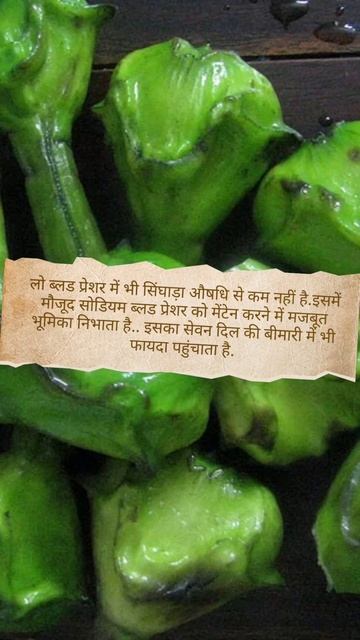 लो ब्लड प्रेशर में भी सिंघाड़ा औषधि से कम नहीं है.इसमें
मौजूद सोडियम ब्लड प्रेशर को मेंटेन करने में मजबूत
भूमिका निभाता है.. इसका सेवन दिल की बीमारी में भी
फायदा पहुंचाता है.